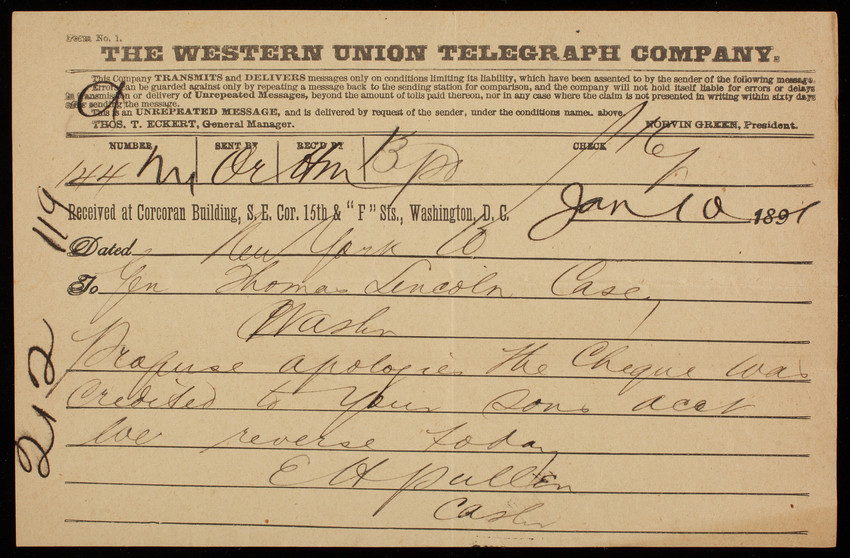 Form No. 1.
THE WESTERN UNION TELEGRAPH COMPANY.
This Company TRANSMITS and DELIVERS messages only on conditions limiting its liability, which have been assented to by the sender of the following message.
Errors can be guarded against only by repeating a message back to the sending station for comparison, and the company will not hold itself liable for errors or delays
in transmission or delivery of Unrepeated Messages, beyond the amount of tolls paid thereon, nor in any case where the claim is not presented in writing within sixty days
after sending the message.
This is an UNREPEATED MESSAGE, and is delivered by request of the sender, under the conditions named above.
THOS. T. ECKERT, General Manager. NORVIN GREEN, President.
NUMBER SENT BY REC'D BY CHECK
144 Or
Received at Corcoran Building, S. E. Cor. 15th & "F" Sts., Washington, D. C. Jan 10 1891
119
Dated New York 10
To Gen Thomas Lincoln Casey
Washn
Profuse apologies the Cheque was
Credited to your sons acct
212
We reverse today
E H Pullen
Cashr